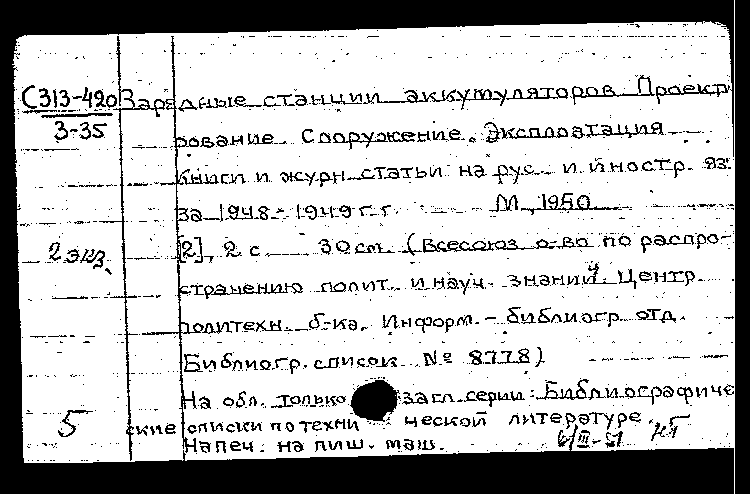 С313-420 Зарядные станции аккумуляторов. Проект
3-35
рование. Сооружение. Эксплоатация
Книги и журн. статьи на рус. и иностр. яз.
за 1948-1949 г.г. М., 1950
2 экз.
[2], 2 с. 30 см. (Всесоюз. о-во по распро-
странению полит. и науч. знаний. Центр.
политехн. б-ка. Информ.-библиогр. отд.
Библиогр. список № 8778)
На обл. только загл. серии: Библиографиче
5
ские списки по техни ческой литературе.
Напеч. на пиш. маш.
6/III-51 НТ